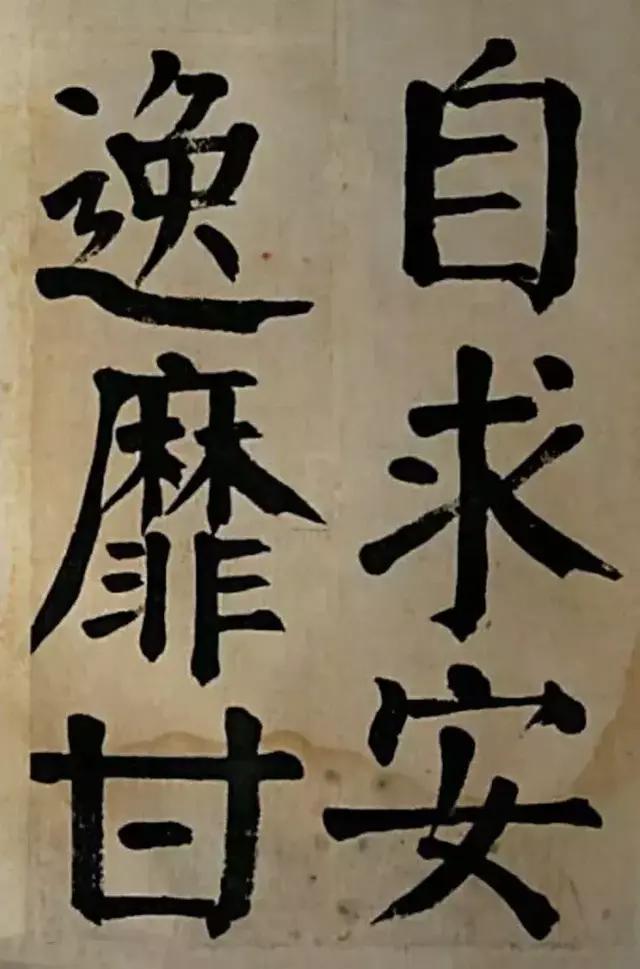 自求安
逸靡甘